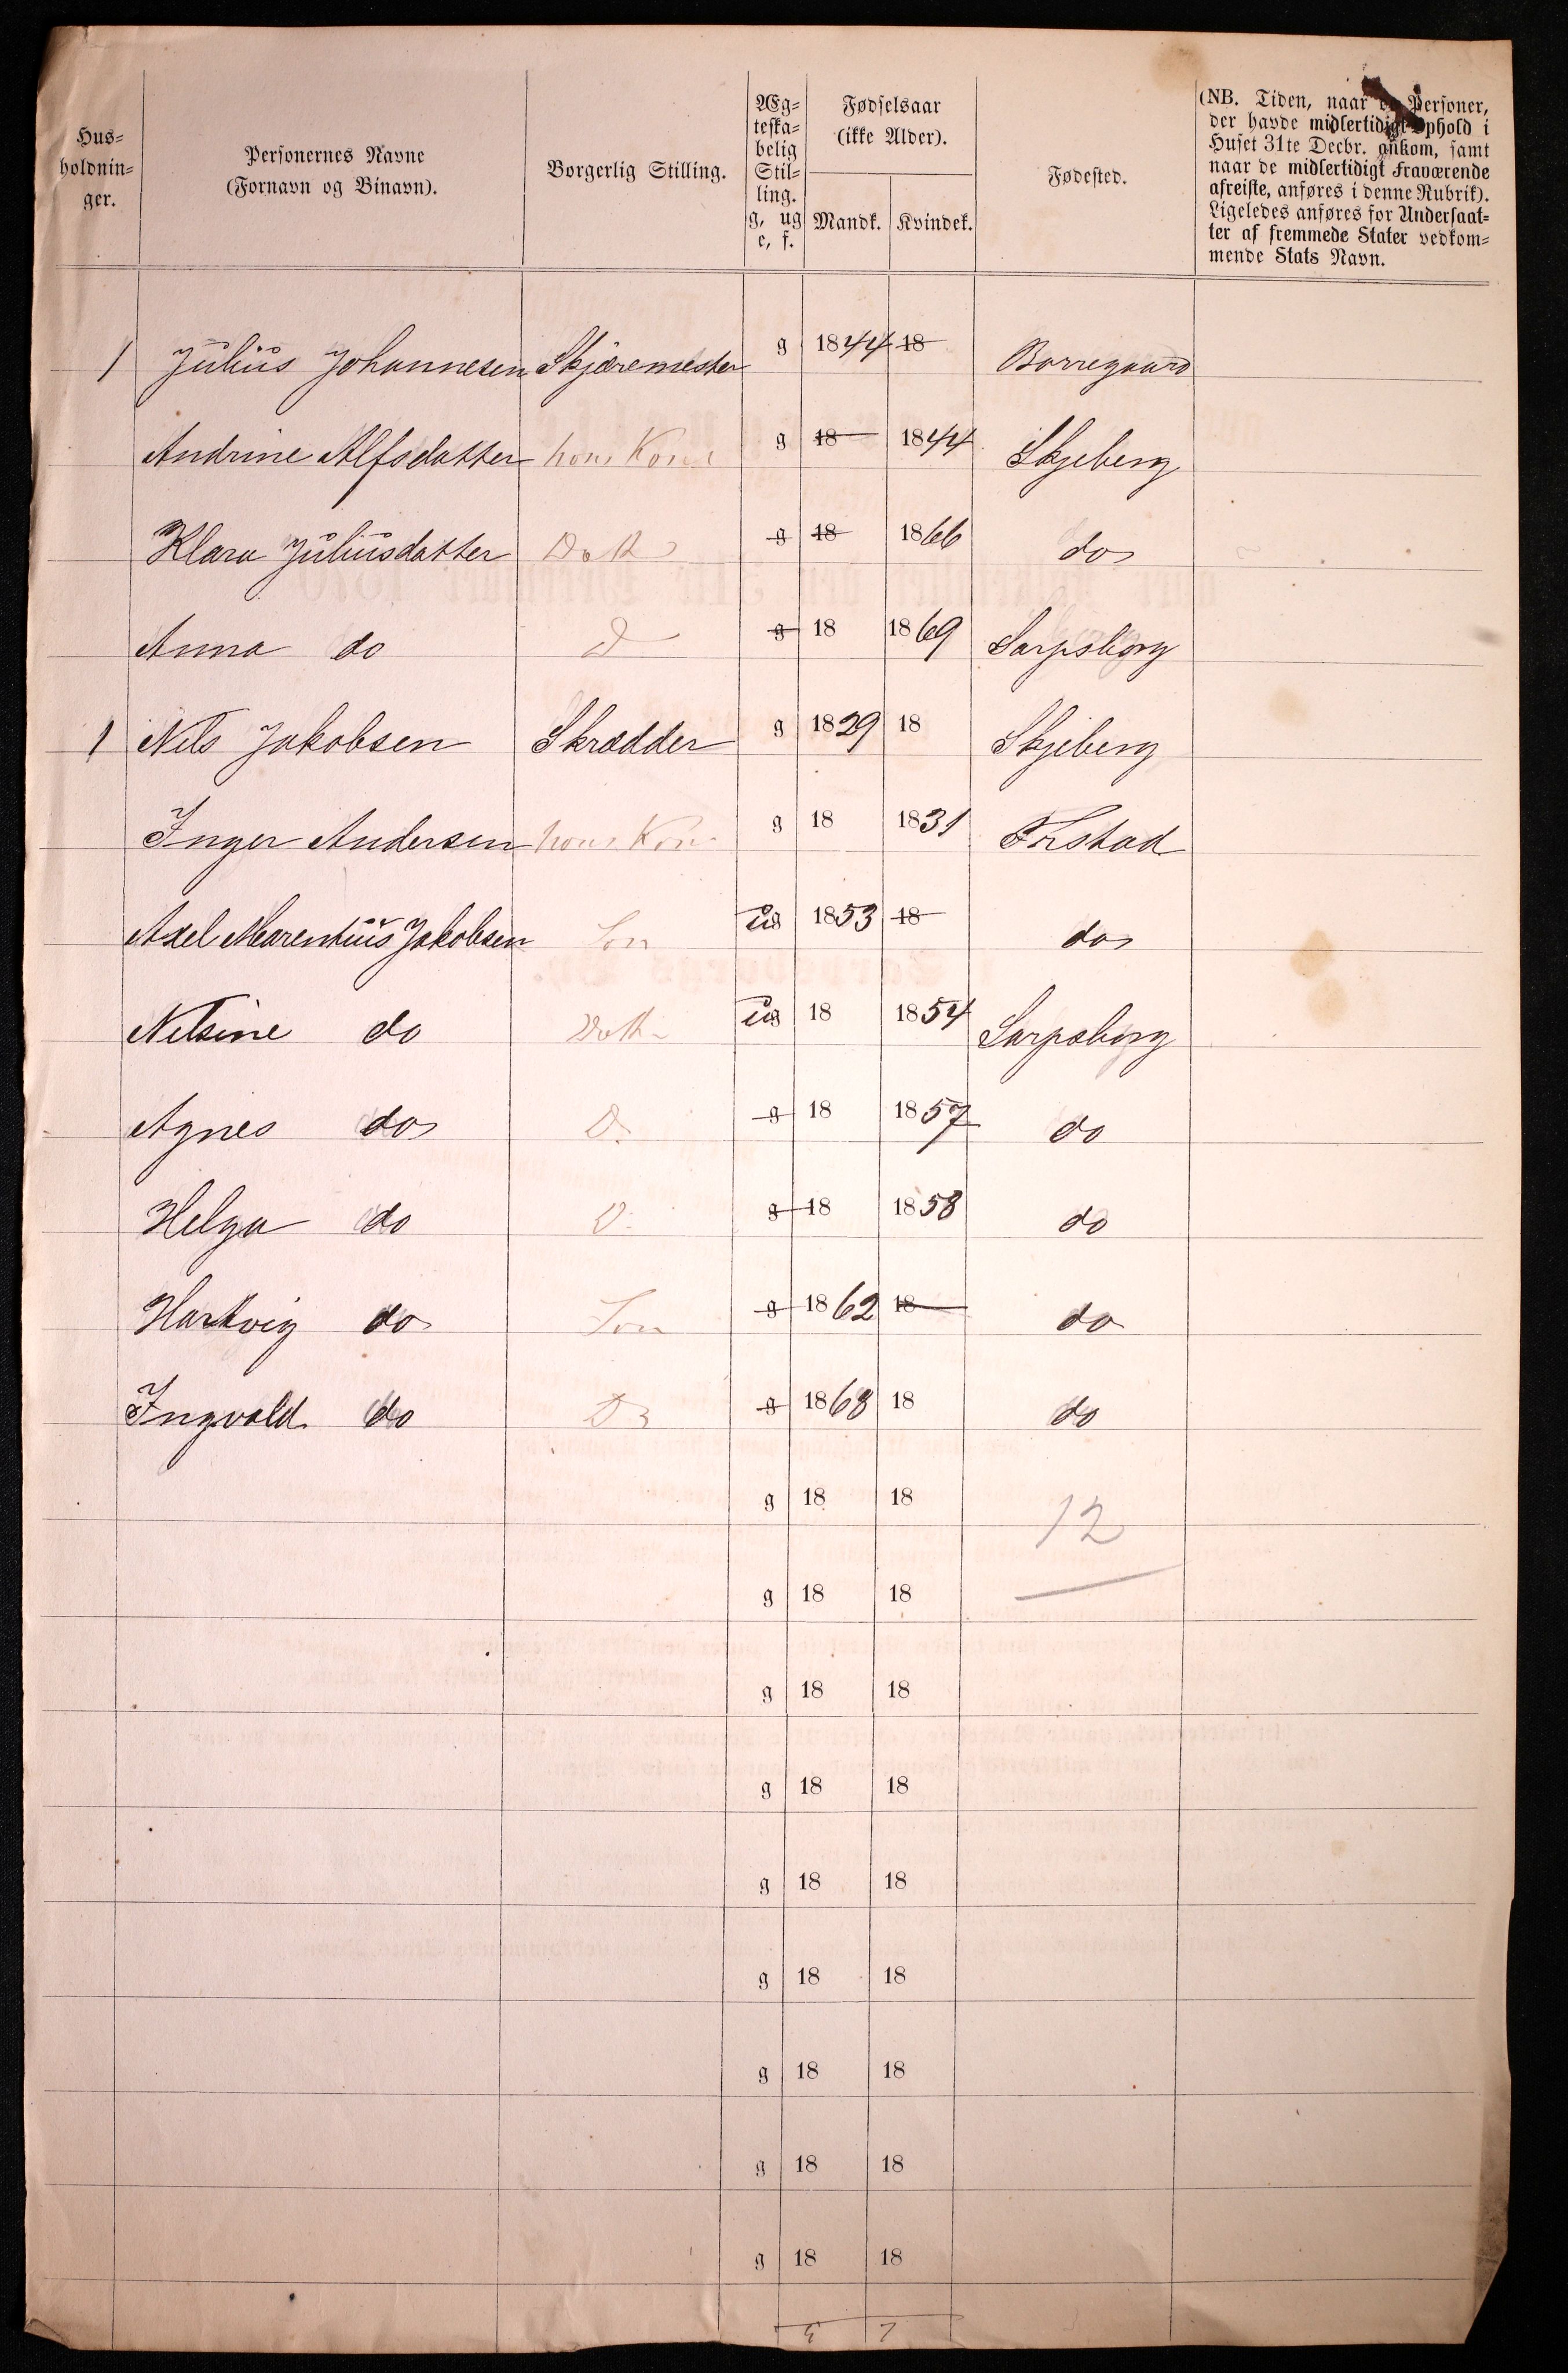 Hus-
holdnin-
ger.
Personernes Navne
(Fornavn og Binavn).
Borgerlig Stilling.
Æg-
teska-
belig
Stil-
ling.
g, ug
e, f.
Fødselsaar
(ikke Alder).
Mandk. Kvindek.
Fødested.
(NB. Tiden, naar Personer,
der havde midlertidigt Ophold i
Huset 31te Decbr. ankom, samt
naar de midlertidigt Fraværende
afreiste, anføres i denne Rubrik).
Ligeledes anføres for Undersaat-
ter af fremmede Stater vedkom-
mende Stats Navn.
1 Julius Johannesen Skjæremester g 1844 18 Borregaard
Andrine Alfsdatter hans Kone g 18 1844 Skjeberg
Klara Juliusdatter Datt g 18 1866 do
Anna do D g 18 1869 Sarpsborg
1 Nils Jakobsen Skrædder g 1829 18 Skjeberg
Inger Andersen hans Kone g 18 1831 Frstad
Axel Marentius Jakobsen Søn ug 1853 18 do
Nilsine do Datt ug 18 1854 Sarpsborg
Agnes do D. g 18 1857 do
Helga do D. g 18 1858 do
Hartvig do Søn g 1862 18 do
Ingvald do g 1868 18 do
g 18 18
12
g 18 18
g 18 18
g 18 18
g 18 18
g 18 18
g 18 18
g 18 18
g 18 18